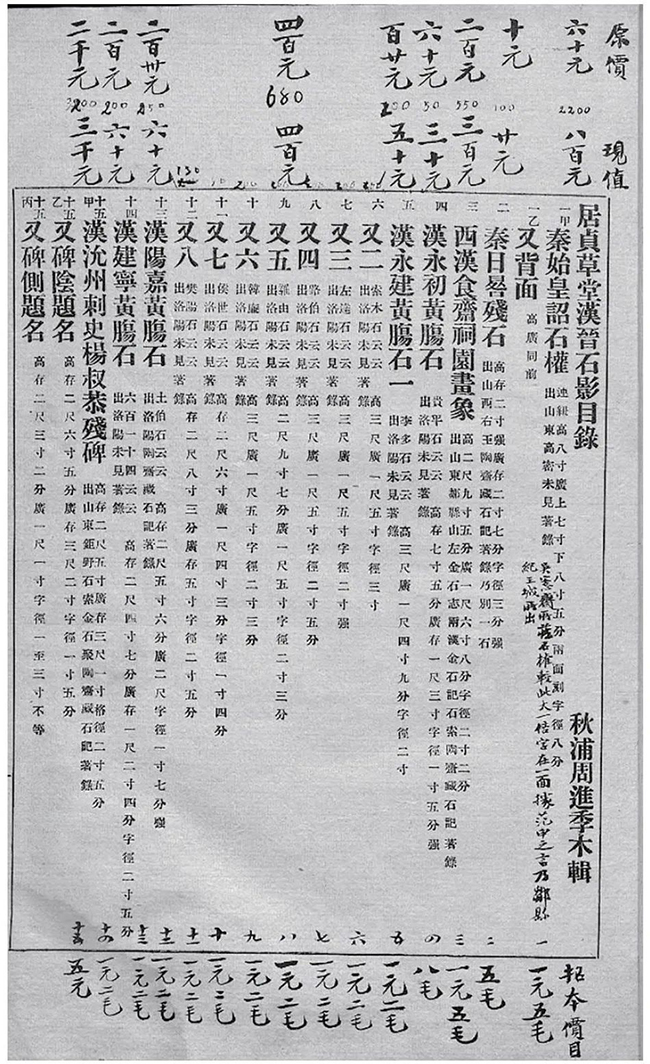 原價
六十元
十元
二百元
六十元
百廿元
四百元
二百卅元
二百元
二千元
2200
100
550
50
200
680
250
200
現值
八百元
廿元
三百元
三十元
五十元
四百元
六十元
六十元
三千元
居貞草堂漢晉石影目錄
秋浦周進季木輯
一甲 秦始皇詔石權 連紐高八寸廣上七寸下八寸五分兩面刻字徑八分
出山東高密未見著錄
一乙 又背面 高廣同前
二 秦日晷殘石 高存二寸强廣存二寸七分字徑三分强
出山西右玉陶齋藏石記著錄乃別一石
三 西漢食齋祠園畫象 高二尺九寸五分廣一尺六寸八分字徑二寸二分
出山東鄒縣山左金石志兩漢金石記石索陶齋藏石記著錄
四 漢永初黃腸石 出洛陽未見著錄
高存七寸五分廣存一尺三寸字徑一寸五分强
五 漢永建黃腸石一 李多石云云 高三尺廣一尺四寸九分字徑二寸
出洛陽未見著錄
六 又二 索木石云云 高三尺廣一尺五寸字徑三寸
出洛陽未見著錄
七 又三 左達石云云 高三尺廣一尺五寸字徑二寸强
出洛陽未見著錄
八 又四 路伯石云云 高三尺廣一尺五寸字徑二寸五分
出洛陽未見著錄
九 又五 出洛陽未見著錄
高二尺九寸七分廣一尺五寸字徑二寸三分
十 又六 出洛陽未見著錄
高三尺廣一尺五寸字徑二寸三分
十一 又七 侯世石云云 高存二尺六寸廣一尺四寸三分字徑一寸四分
出洛陽未見著錄
十二 又八 樊陽石云云 高存二尺八寸三分廣存五寸字徑二寸五分
出洛陽未見著錄
十三 漢陽嘉黃腸石 土伯石云云 高存二尺五寸六分廣二尺字徑一寸七分强
出洛陽陶齋藏石記著錄
十四 漢建寧黃腸石 六百一十四云云 高存二尺四寸七分廣存一尺二寸四分字徑二寸五分
出洛陽未見著錄
十五甲 漢沇州刺史楊叔恭殘碑 高存二尺五寸廣存三尺一寸格徑二寸五分
出山東鉅野石索金石聚陶齋藏石記著錄
十五乙 又碑陰題名 高存二尺六寸五分廣存三尺二寸字徑一寸五分
十五丙 又碑側題名 高存二尺三寸二分廣一尺一寸字徑一至三寸不等
拓本價目
一 一元五毛
二 五毛
三 一元五毛
四 八毛
五 一元二毛
六 一元二毛
七 一元二毛
八 一元二毛
九 一元二毛
十 一元二毛
十一 一元二毛
十二 一元二毛
十三 一元二毛
十四 一元二毛
十五 五元